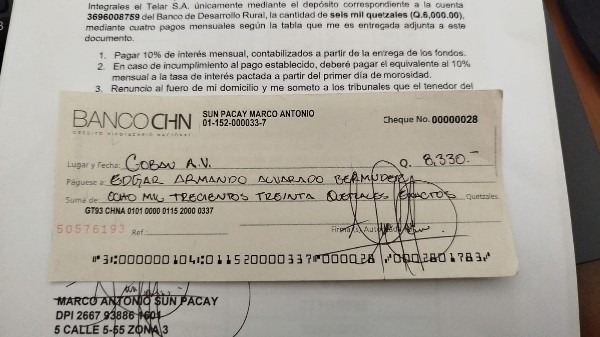 Integrales el Telar S.A. únicamente mediante el depósito correspondiente a la cuenta
3696008759 del Banco de Desarrollo Rural, la cantidad de seis mil quetzales (Q.6,000.00),
mediante cuatro pagos mensuales según la tabla que me es entregada adjunta a este
documento.
1. Pagar 10% de interés mensual, contabilizados a partir de la entrega de los fondos.
2. En caso de incumplimiento al pago establecido, deberé pagar el equivalente al 10%
mensual a la tasa de interés pactada a partir del primer día de morosidad.
3. Renuncio al fuero de mi domicilio y me someto a los tribunales que el tenedor del
BANCO CHN
CRÉDITO HIPOTECARIO NACIONAL
SUN PACAY MARCO ANTONIO
01-152-000033-7
Cheque No. 00000028
Lugar y Fecha: COBAN A.V. Q. 8,330.-
Páguese a: EDGAR ARMANDO ALVARADO BERMUDEZ
Suma de: OCHO MIL TRECIENTOS TREINTA QUETZALES EXACTOS Quetzales
GT93 CHNA 0101 0000 0115 2000 0337
50576193 Ref:
MARCO ANTONIO SUN PACAY
DPI 2667 93886 1601
5 CALLE 5-55 ZONA 3